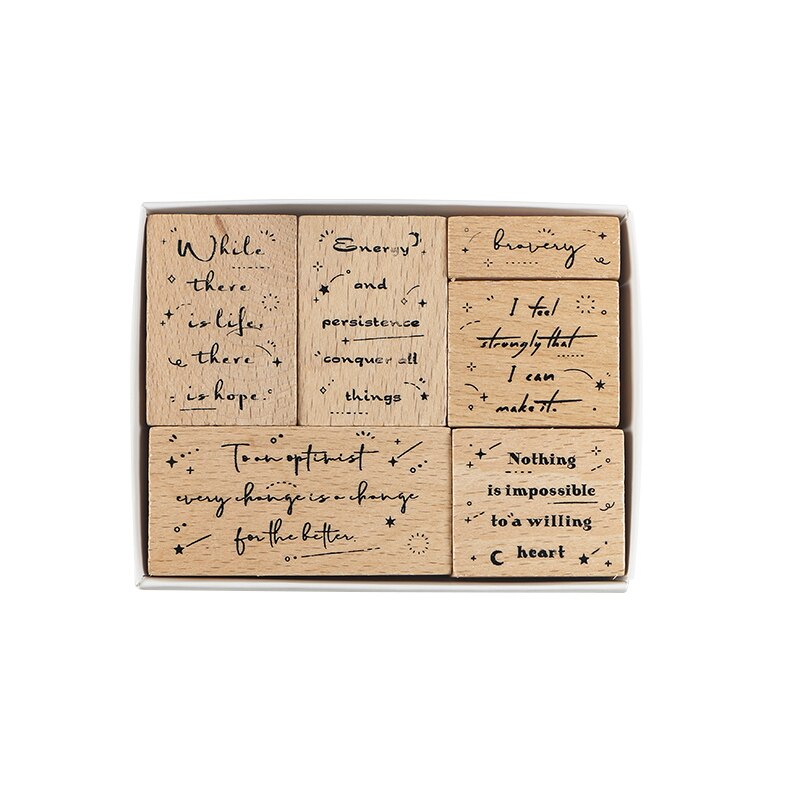 While
there
is life,
there
is hope.
Energy
and
persistence
conquer all
things
bravery
I feel
strongly that
I can
make it.
To an optimist
every change is a change
for the better.
Nothing
is impossible
to a willing
heart